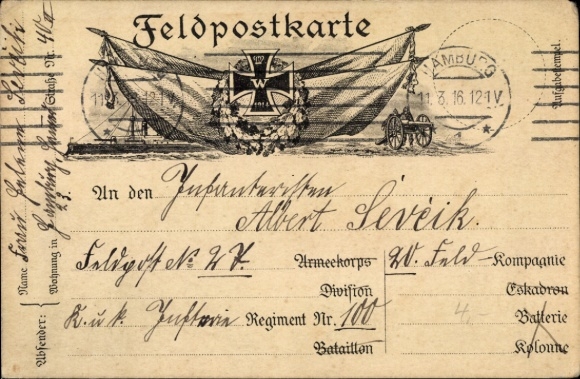 Feldpostkarte
1813
W
1914
HAMBURG
11.3.16.12-1V.
Aufgabestempel.
An den Infanteristen
Albert Ševčik.
Feldpost No 27. Armeekorps 20. Feld-Kompagnie
Division Eskadron
K. u. k. Inftrie Regiment Nr. 100 Batterie
Bataillon Kolonne
4
Absender:
Name Frau Helene Sevčik
Wohnung in Hamburg, Straße Nr.